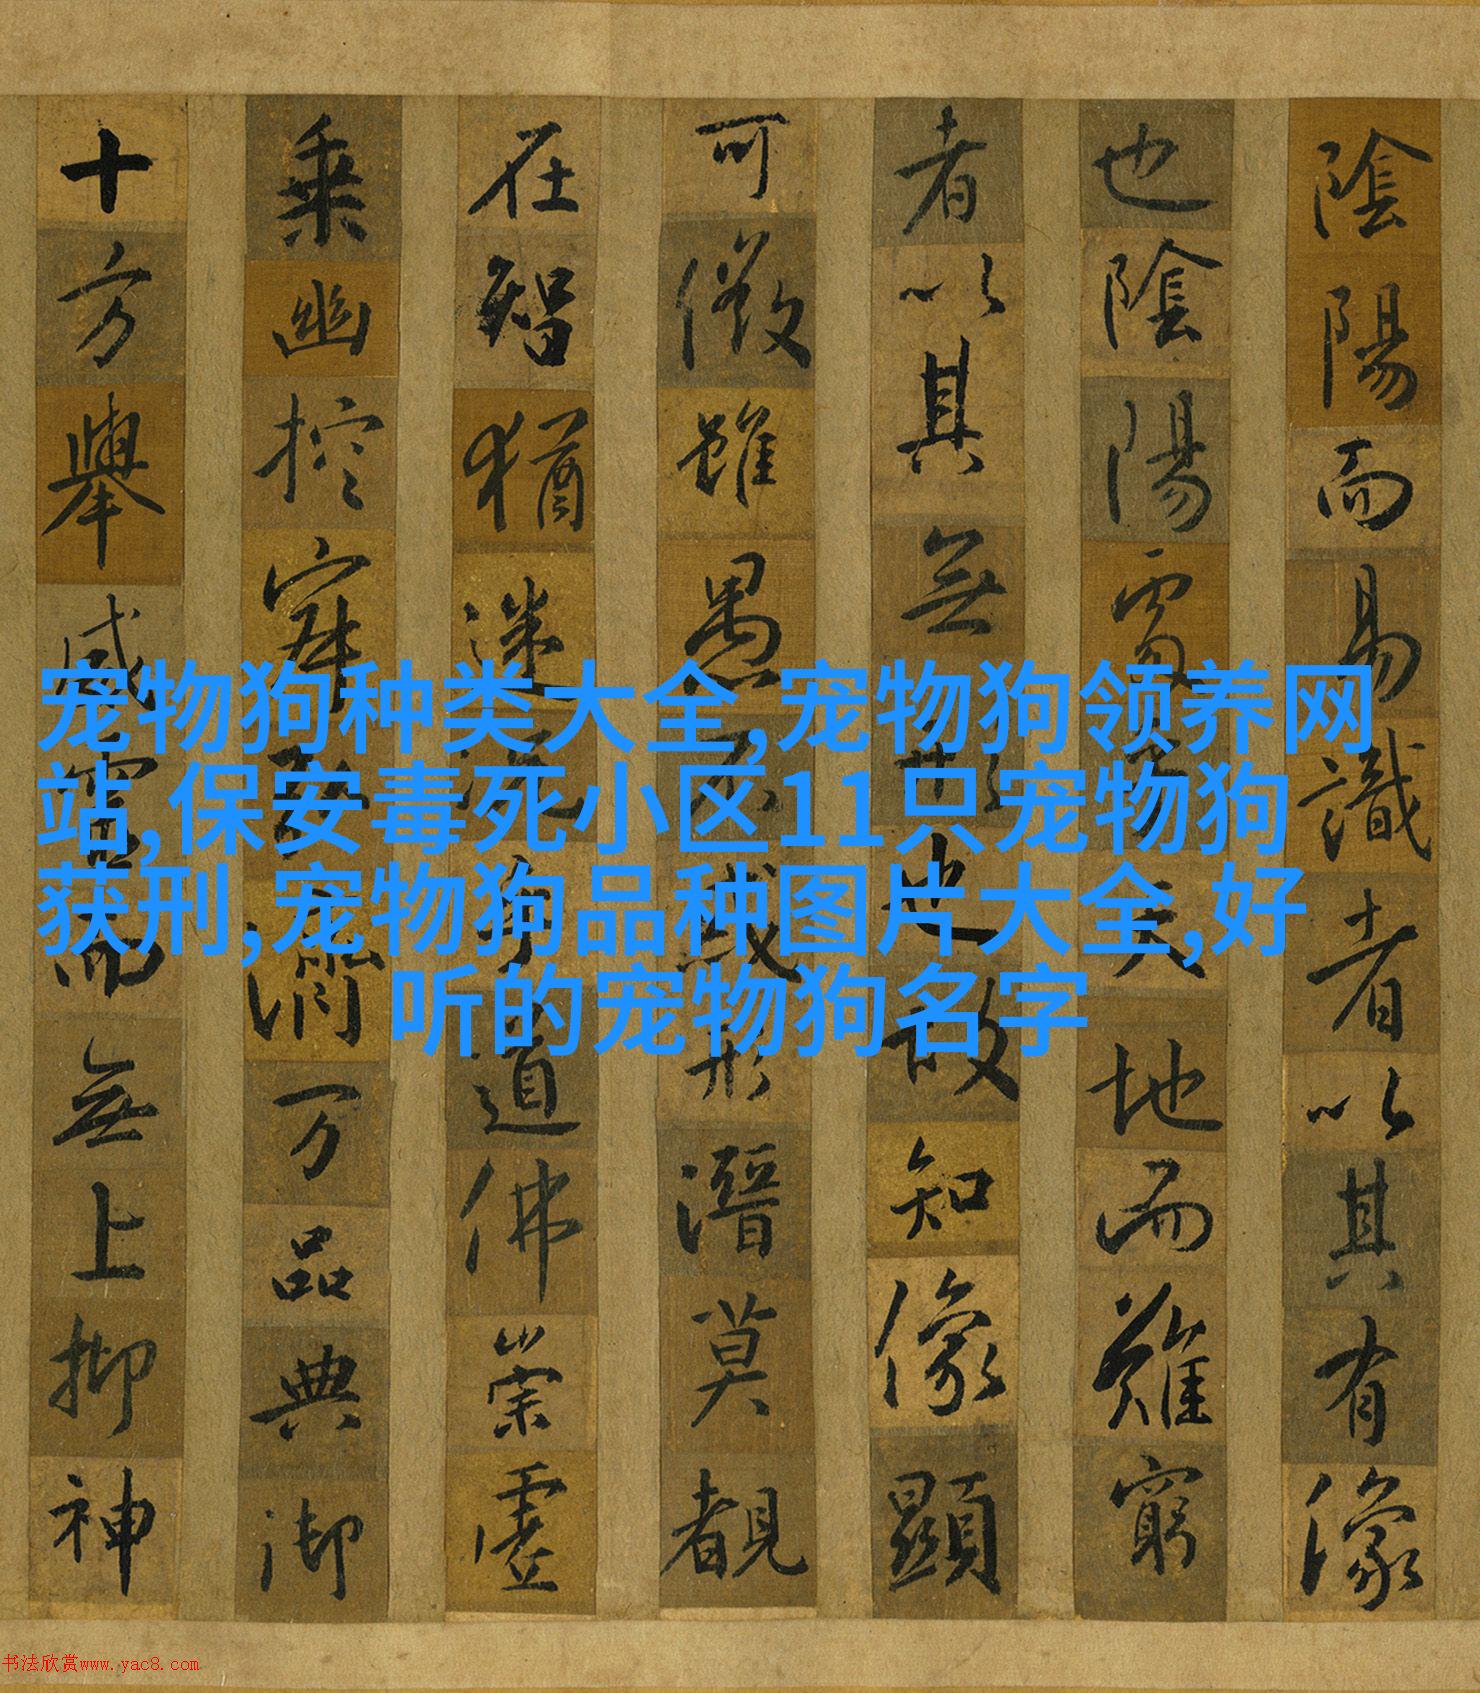 宠物狗种类大全,宠物狗领养网
站,保安毒死小区11只宠物狗
获刑,宠物狗品种图片大全,好
听的宠物狗名字
陰陽而易識者以其有像
也陰陽處乎天地而難窮
者以其無形也故知像顯
可徵雖愚不惑形潛莫覩
在智猶迷況乎道佛崇虛
乗幽控寂弘濟万品典御
十方舉威靈而無上抑神
书法欣赏www.yac8.com